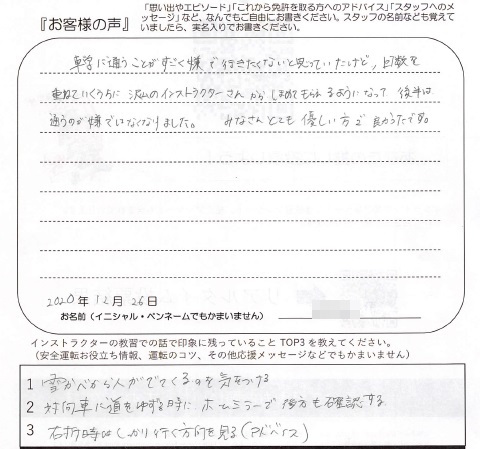 『お客様の声』
「思い出やエピソード」「これから免許を取る方へのアドバイス」「スタッフへのメ
ッセージ」など、なんでもご自由にお書きください。スタッフの名前なども覚えて
いましたら、実名入りでお書きください。
車学に通うことがすごく嫌で行きたくないと思っていたけど、回数を
重ねていくうちに沢山のインストラクターさんからほめてもらえるようになって後半は
通うのが嫌でいなくなりました。 みなさんとても優しい方で 助かったです。
2020年12月26日
お名前（イニシャル・ペンネームでもかまいません）
インストラクターの教習での話で印象に残っていること TOP3 を教えてください。
（安全運転お役立ち情報、運転のコツ、その他応援メッセージなどでもかまいません）
1 雪かべから人がでてくるのを気をつける
2 対向車に道をゆずる時に ルームミラーで後方も確認する
3 右折時はしっかり行く方向を見る(アドバイス)